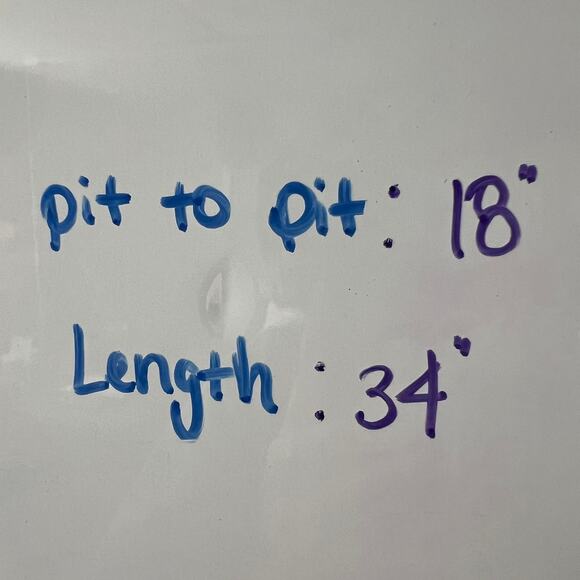 pit to pit: 18"
Length: 34"